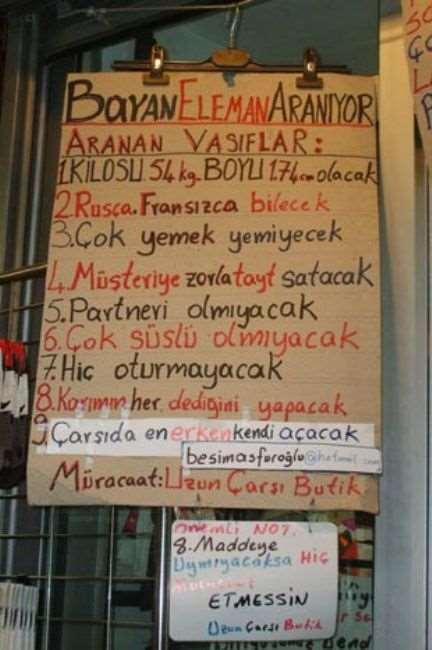 BAYAN ELEMAN ARANIYOR
ARANAN VASIFLAR:
1.KİLOSU 54 kg. BOYU 1.74cm olacak
2.Rusça.Fransızca bilecek
3.Çok yemek yemiyecek
4.Müşteriye zorla tayt satacak
5.Partneri olmıyacak
6.Çok süslü olmıyacak
7.Hiç oturmayacak
8.Karımın her dediğini yapacak
9.Çarsıda en erken kendi açacak
besimasfuroğlu@hotmail.com
Müracaat:Uzun Çarşı Butik
önemli NOT.
8.Maddeye
Uymıyacaksa Hiç
Müracaat
ETMESSİN
Uzun Çarşı Butik